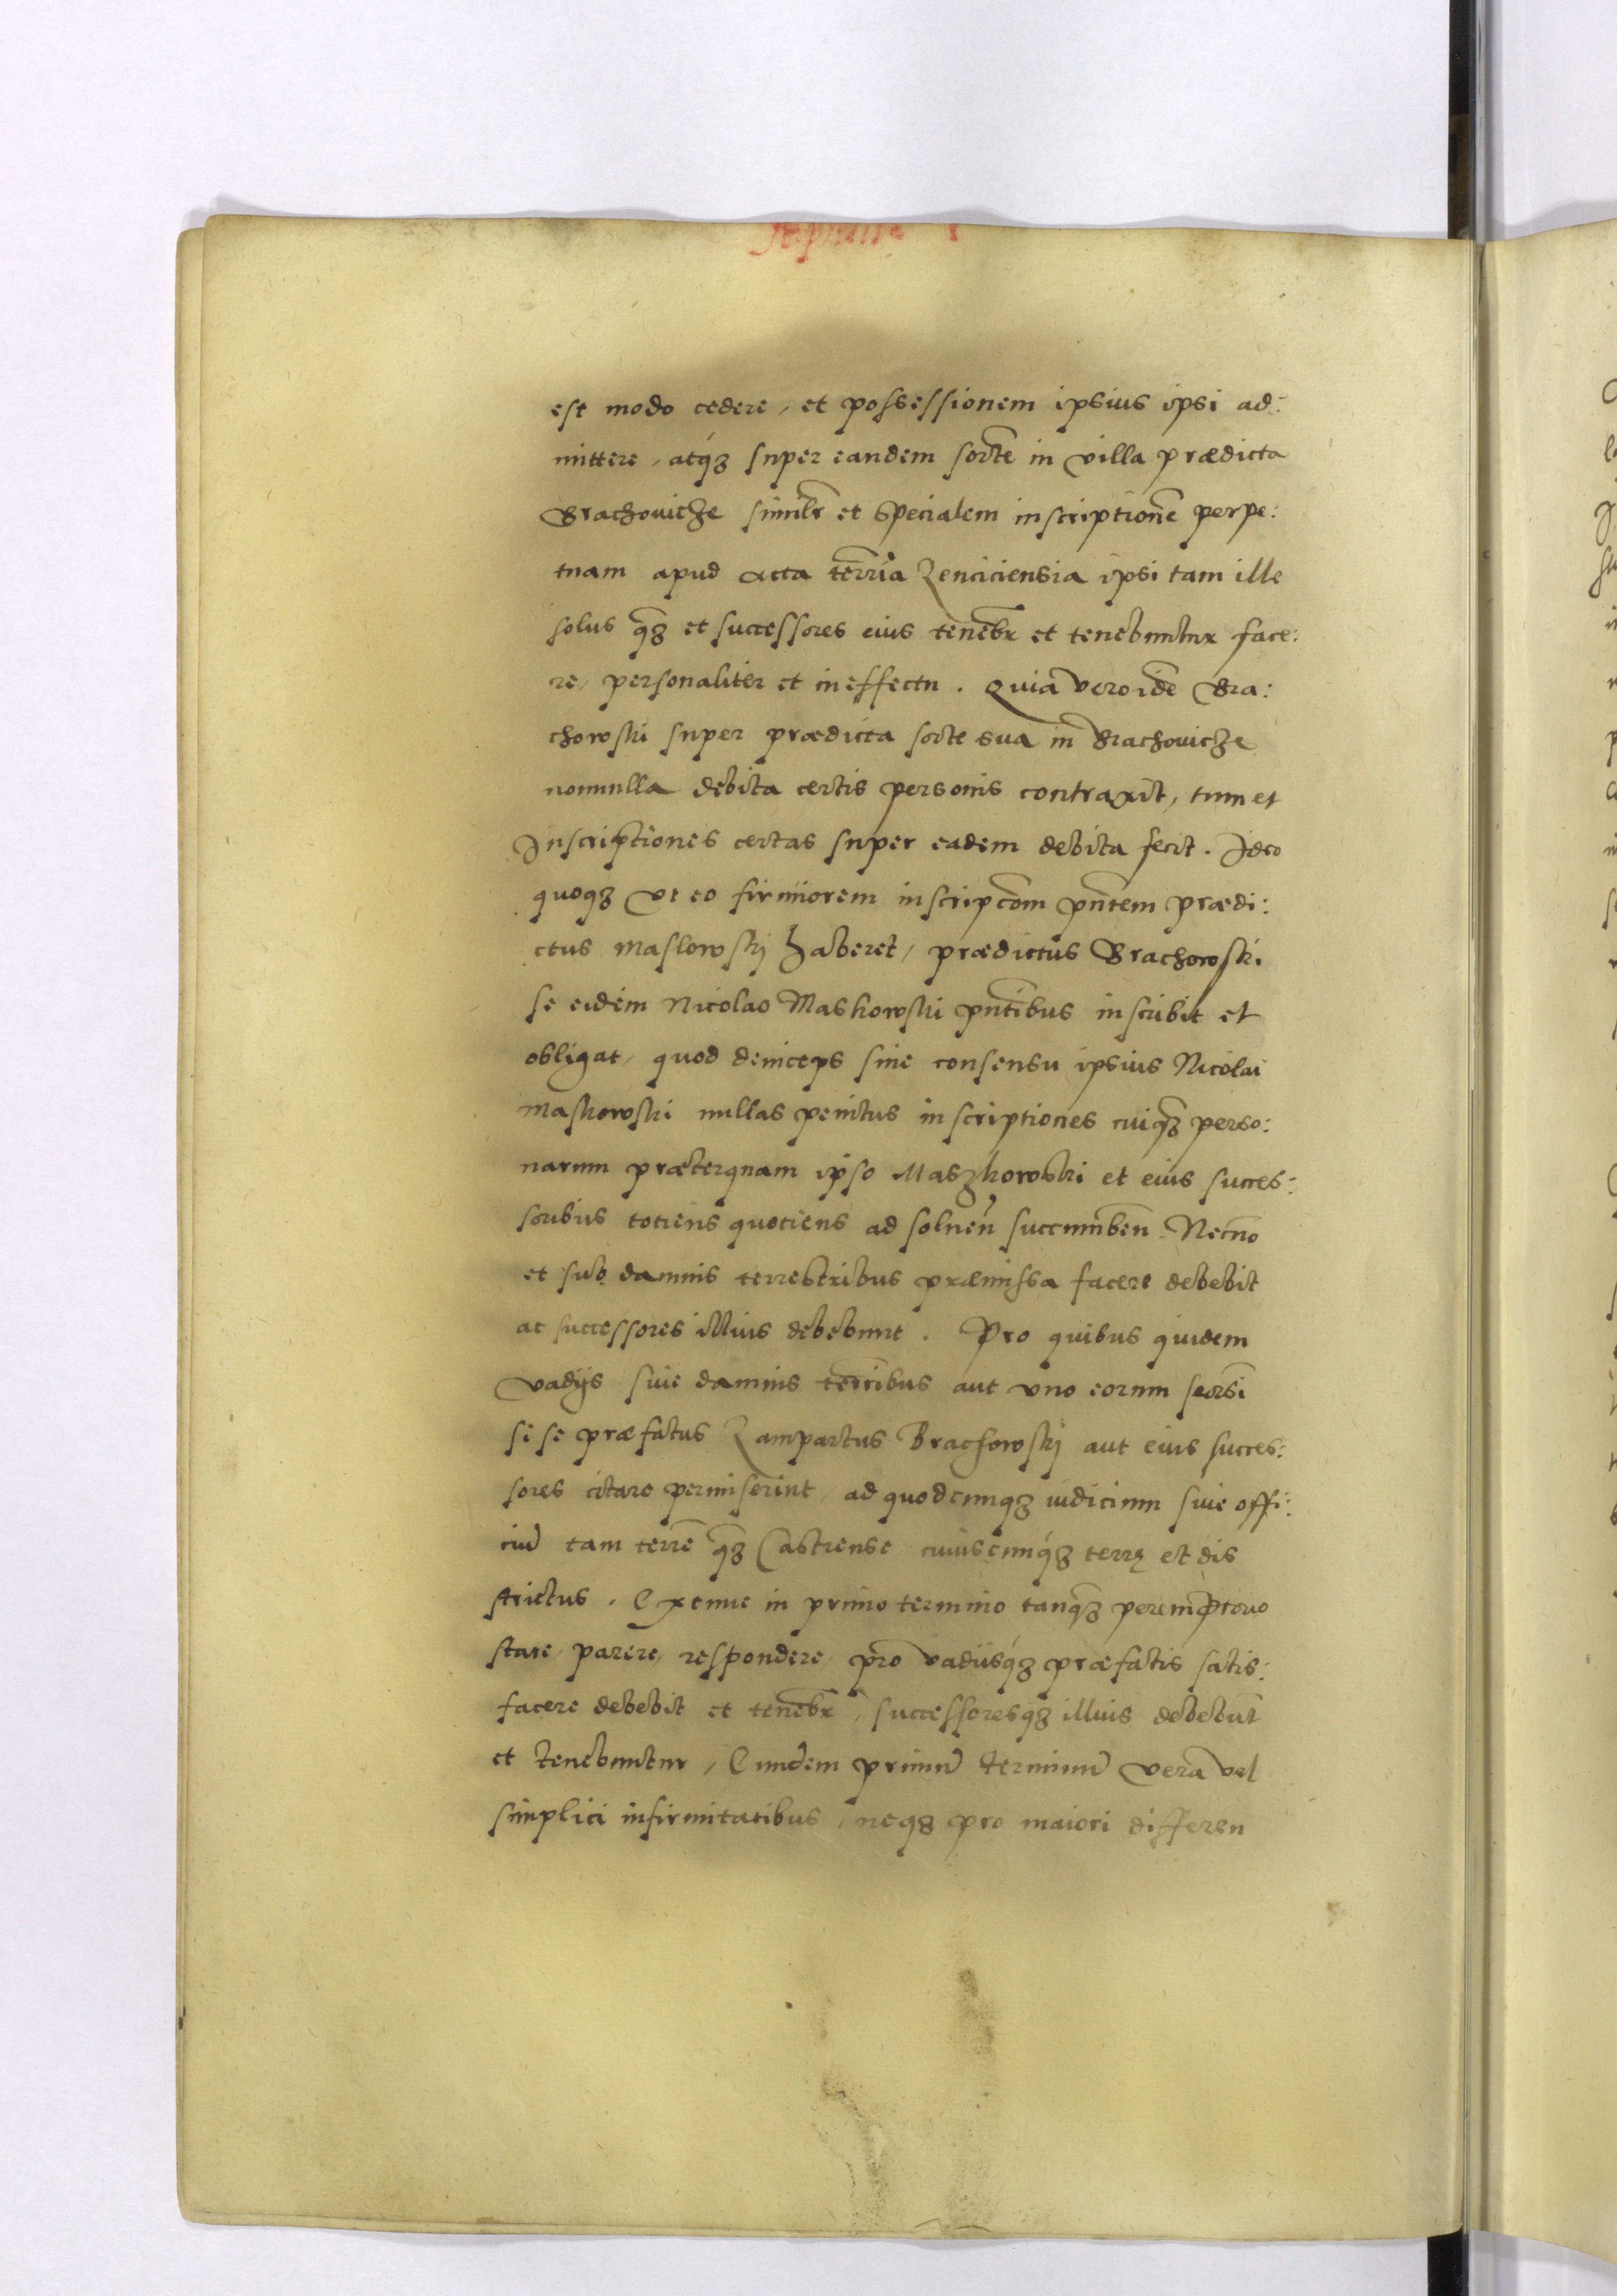 est modo cedere, et possessionem ipsius ipsi ad:
mittere, atq₃ super eandem sortē in villa prædicta
Brachouicze similr̄ et specialem inscriptionē perpe:
tuam apud acta terrīa Lenciciensia ipsi tam ille
solus q̄₃ et successores eius tenebr̄ et tenebuntur face:
re, personaliter et in effectu. Quia vero idē Bra:
chowski super prædicta sorte sua in Brachouicze
nonnulla debita certis personis contraxit, tum et
Inscriptiones certas super eadem debita fecit. Ideo
quoq₃ vt eo firmiorem inscripcōm pn̄tem prædi:
ctus Maslowskj haberet, prædictus Brachowski
se eidem Nicolao Maskowski pn̄tibus inscribit et
obligat, quod deinceps sine consensu ipsius Nicolai
Maskowski nullas penitus inscriptiones cuiq̄₃ perso:
narum præterquam ipso Maszkowski et eius succes:
soribus totiens quotiens ad soluen̄ succumben̄. Necno
et sub damnis terrestribus præmissa facere debebit
ac successores illius debebunt. Pro quibus quidem
vadijs siue damnis terrībus aut vno eorum seorsī
si se præfatus Lampartus Brachowskj aut eius succes:
sores citare permiserint, ad quodcunq₃ iudicium siue offi:
ciū tam terrē q̄₃ Castrense cuiuscunq₃ terrę et dis
strictus. Extunc in primo termino tanq̄₃ peremptorio
stare, parere, respondere, pro vadiisq₃ præfatis satis:
facere debebit et tenebr̄, successoresq₃ illius debebūt
et tenebuntur, Eundem primū terminū vera vel
simplici infirmitatibus, neq₃ pro maiori differen